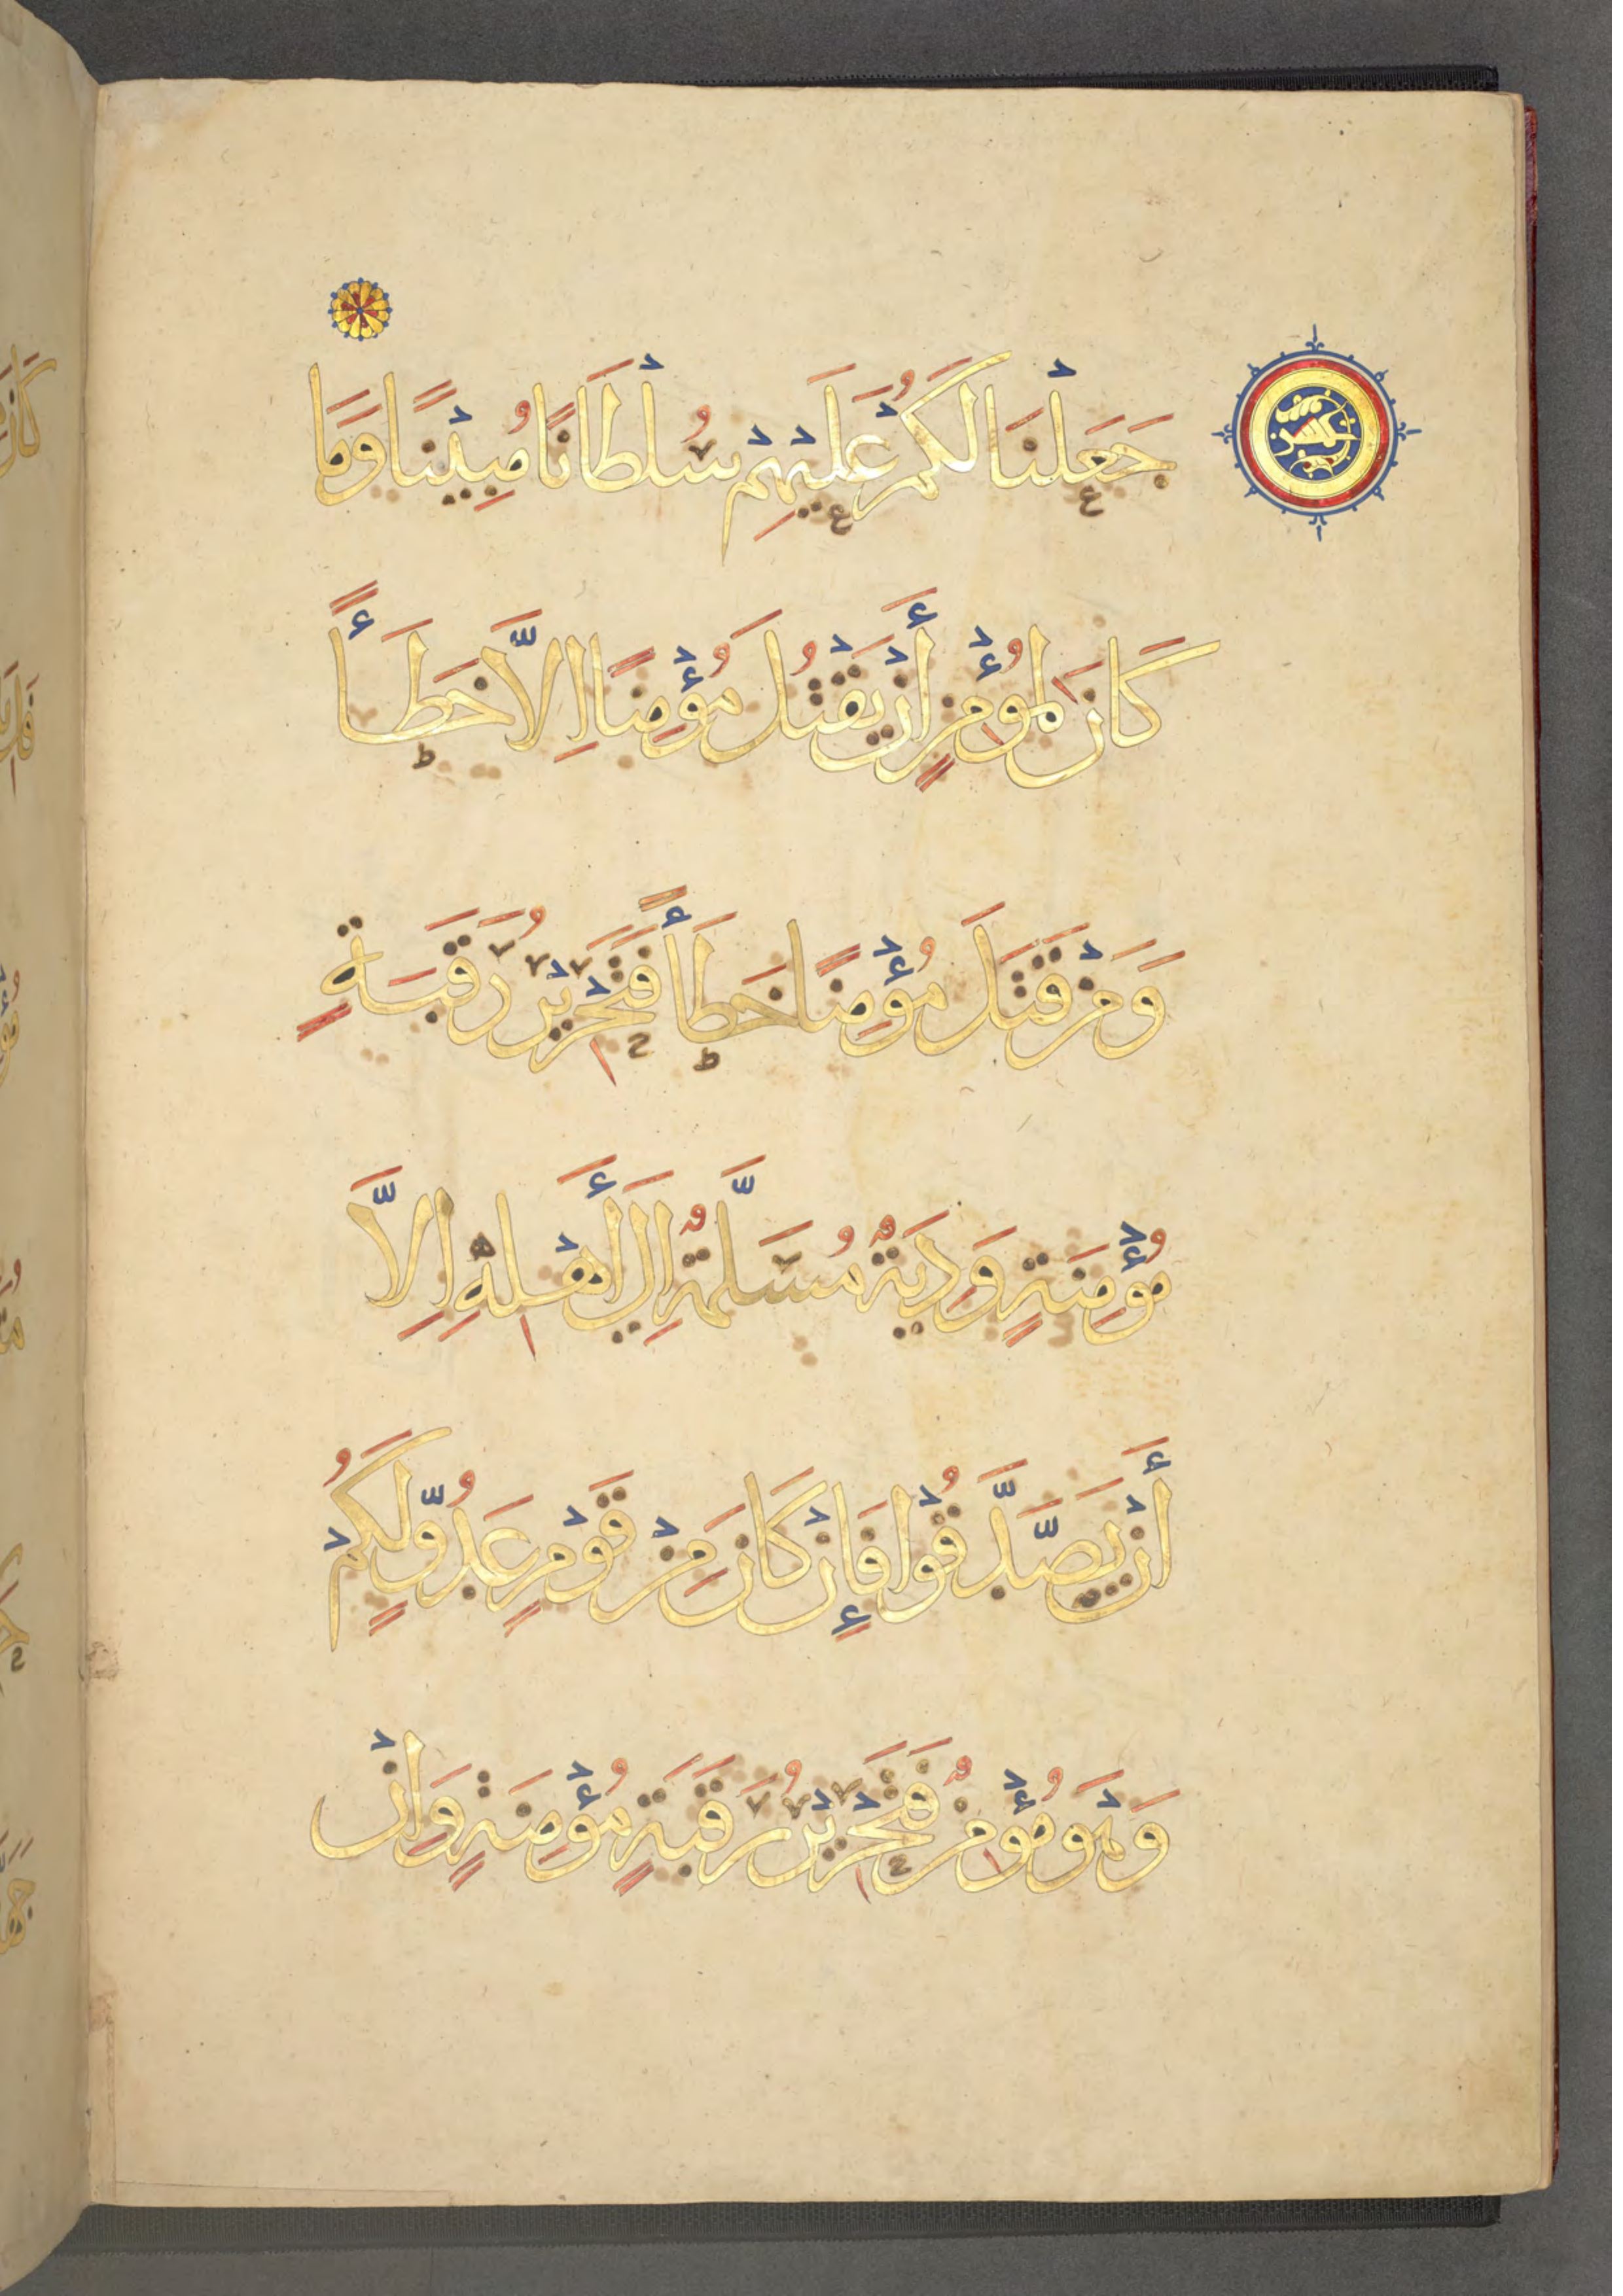 جَعَلْنَا لَكُمْ عَلَيْهِمْ سُلْطَانًا مُبِيْنًا وَمَا
كَانَ لِمُؤْمِنٍ أَنْ يَقْتُلَ مُؤْمِنًا اِلاَّ خَطَأً
وَمَنْ قَتَلَ مُؤْمِنًا خَطَأً فَتَحْرِيْرُ رَقَبَةٍ
مُؤْمِنَةٍ وَدِيَةٌ مُسَلَّمَةٌ اِلَى أَهْلِهِ اِلاَّ
أَنْ يَصَّدَّقُوْا فَإِنْ كَانَ مِنْ قَوْمٍ عَدُوٍّ لَكُمْ
وَهْوَ مُؤْمِنٌ فَتَحْرِيْرُ رَقَبَةٍ مُؤْمِنَةٍ وَاِنْ